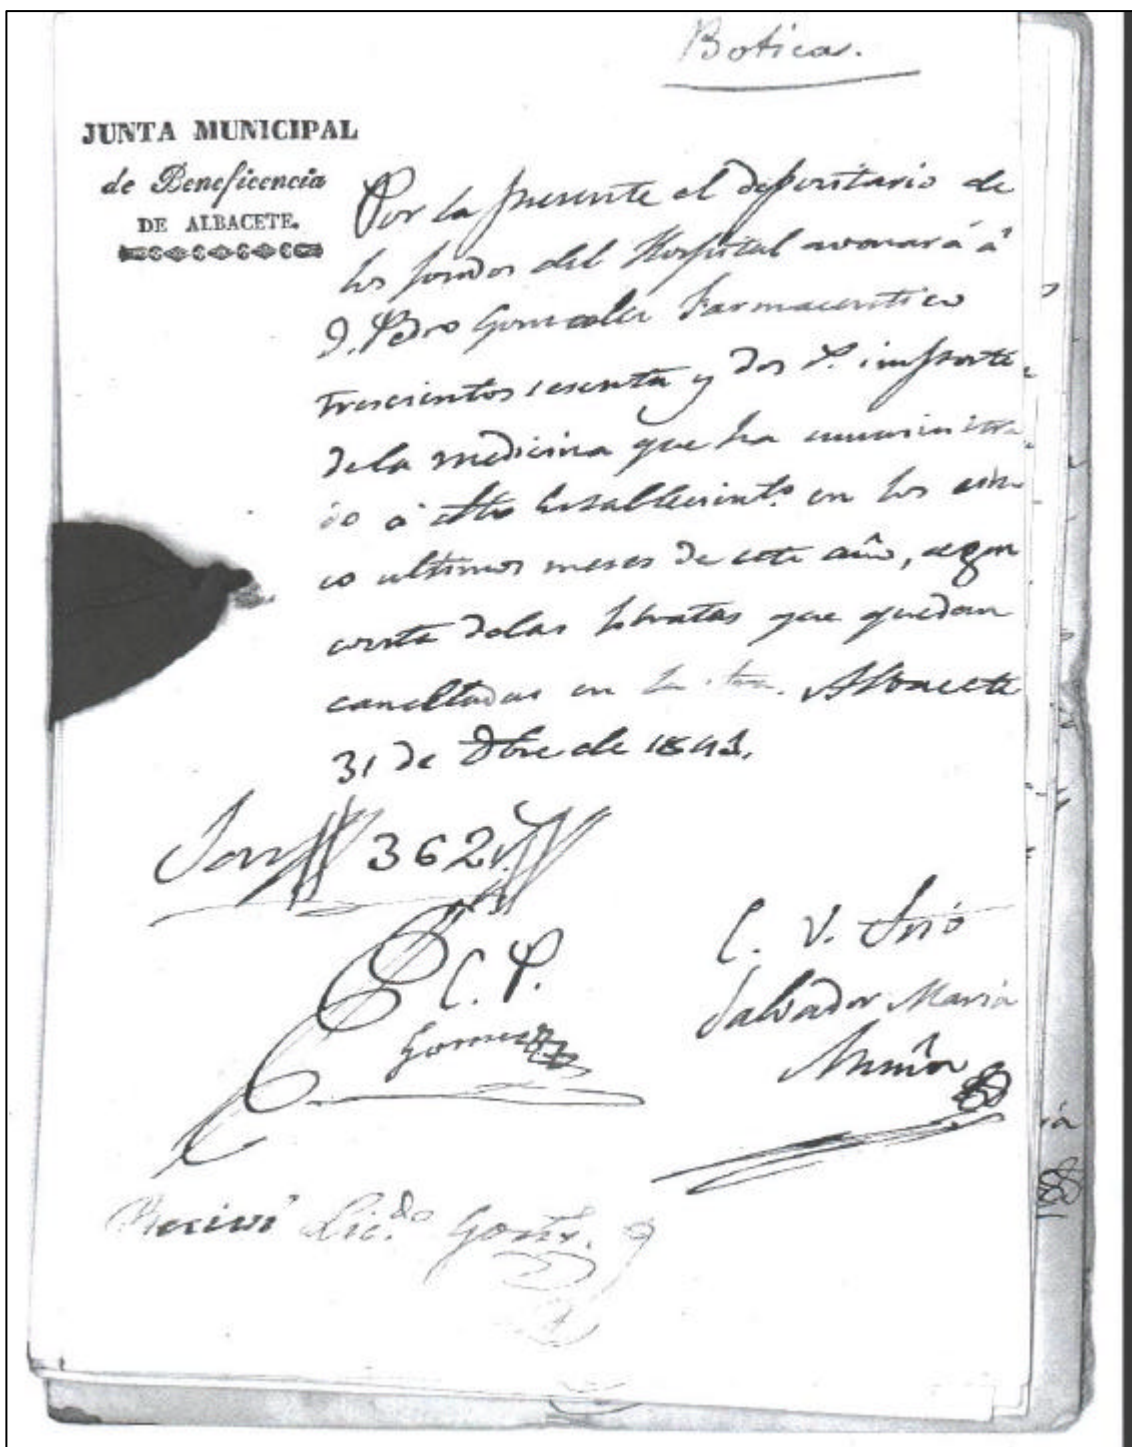 Boticas.
JUNTA MUNICIPAL
de Beneficencia
DE ALBACETE.
Por la presente el depositario de
los fondos del Hospital avonará á
D. Pedro Gonzalez Farmaceutico
trescientos sesenta y dos r. importe
de la medicina que ha suministra
do á dho Establecimto. en los cin
co ultimos meses de este año, segun
consta de las libratas que quedan
canceladas en la Albacete
31 de Dbre de 1843.
Son 362 r.
C. P.
Gomez
C. V. Srio
Salvador Maria
Recivi Lic.do Gonz.